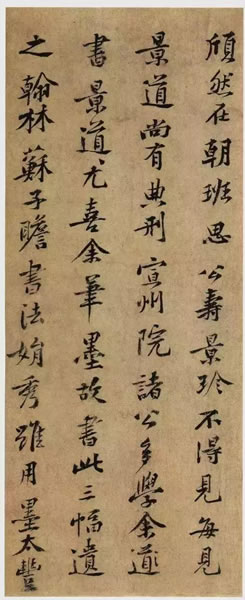 頎然在朝班思公壽景珍不得見每見
景道尚有典刑宣州院諸公多學余道
書景道〻尤喜余筆墨故書此三幅遺
之翰林蘇子瞻書法娟秀雖用墨太豐